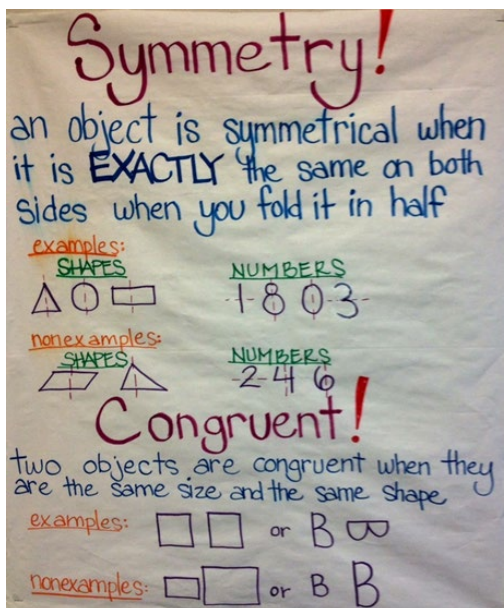 Symmetry!
an object is symmetrical when
it is EXACTLY the same on both
sides when you fold it in half
examples:
SHAPES NUMBERS
1 8 0 3
nonexamples:
SHAPES NUMBERS
2 4 6
Congruent!
two objects are congruent when they
are the same size and the same shape.
examples: or B B
nonexamples: or B B